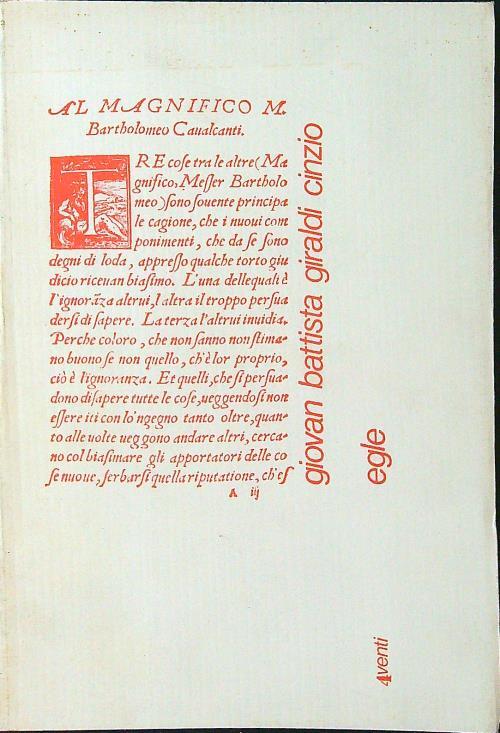 AL MAGNIFICO M.
Bartholomeo Caualcanti.
TRE cose tra le altre (Ma
gnifico, Messer Bartholo
meo) sono souente principa
le cagione, che i nuoui com
ponimenti, che da se sono
degni di loda, appresso qualche torto giu
dicio riceuan biasimo. L'una dellequali è
l'ignorãza altrui, l altra il troppo persua
dersi di sapere. La terza l'altrui inuidia.
Perche coloro, che non sanno non stima-
no buono se non quello, ch'è lor proprio,
ciò è l'ignoranza. Et quelli, che si persua-
dono di sapere tutte le cose, ueggendosi non
essere iti con lo'ngegno tanto oltre, quan-
to alle uolte ueggono andare altri, cerca-
no col biasimare gli apportatori delle co
se nuoue, serbarsi quella riputatione, ch'es
A iij
giovan battista giraldi cinzio
egle
4venti